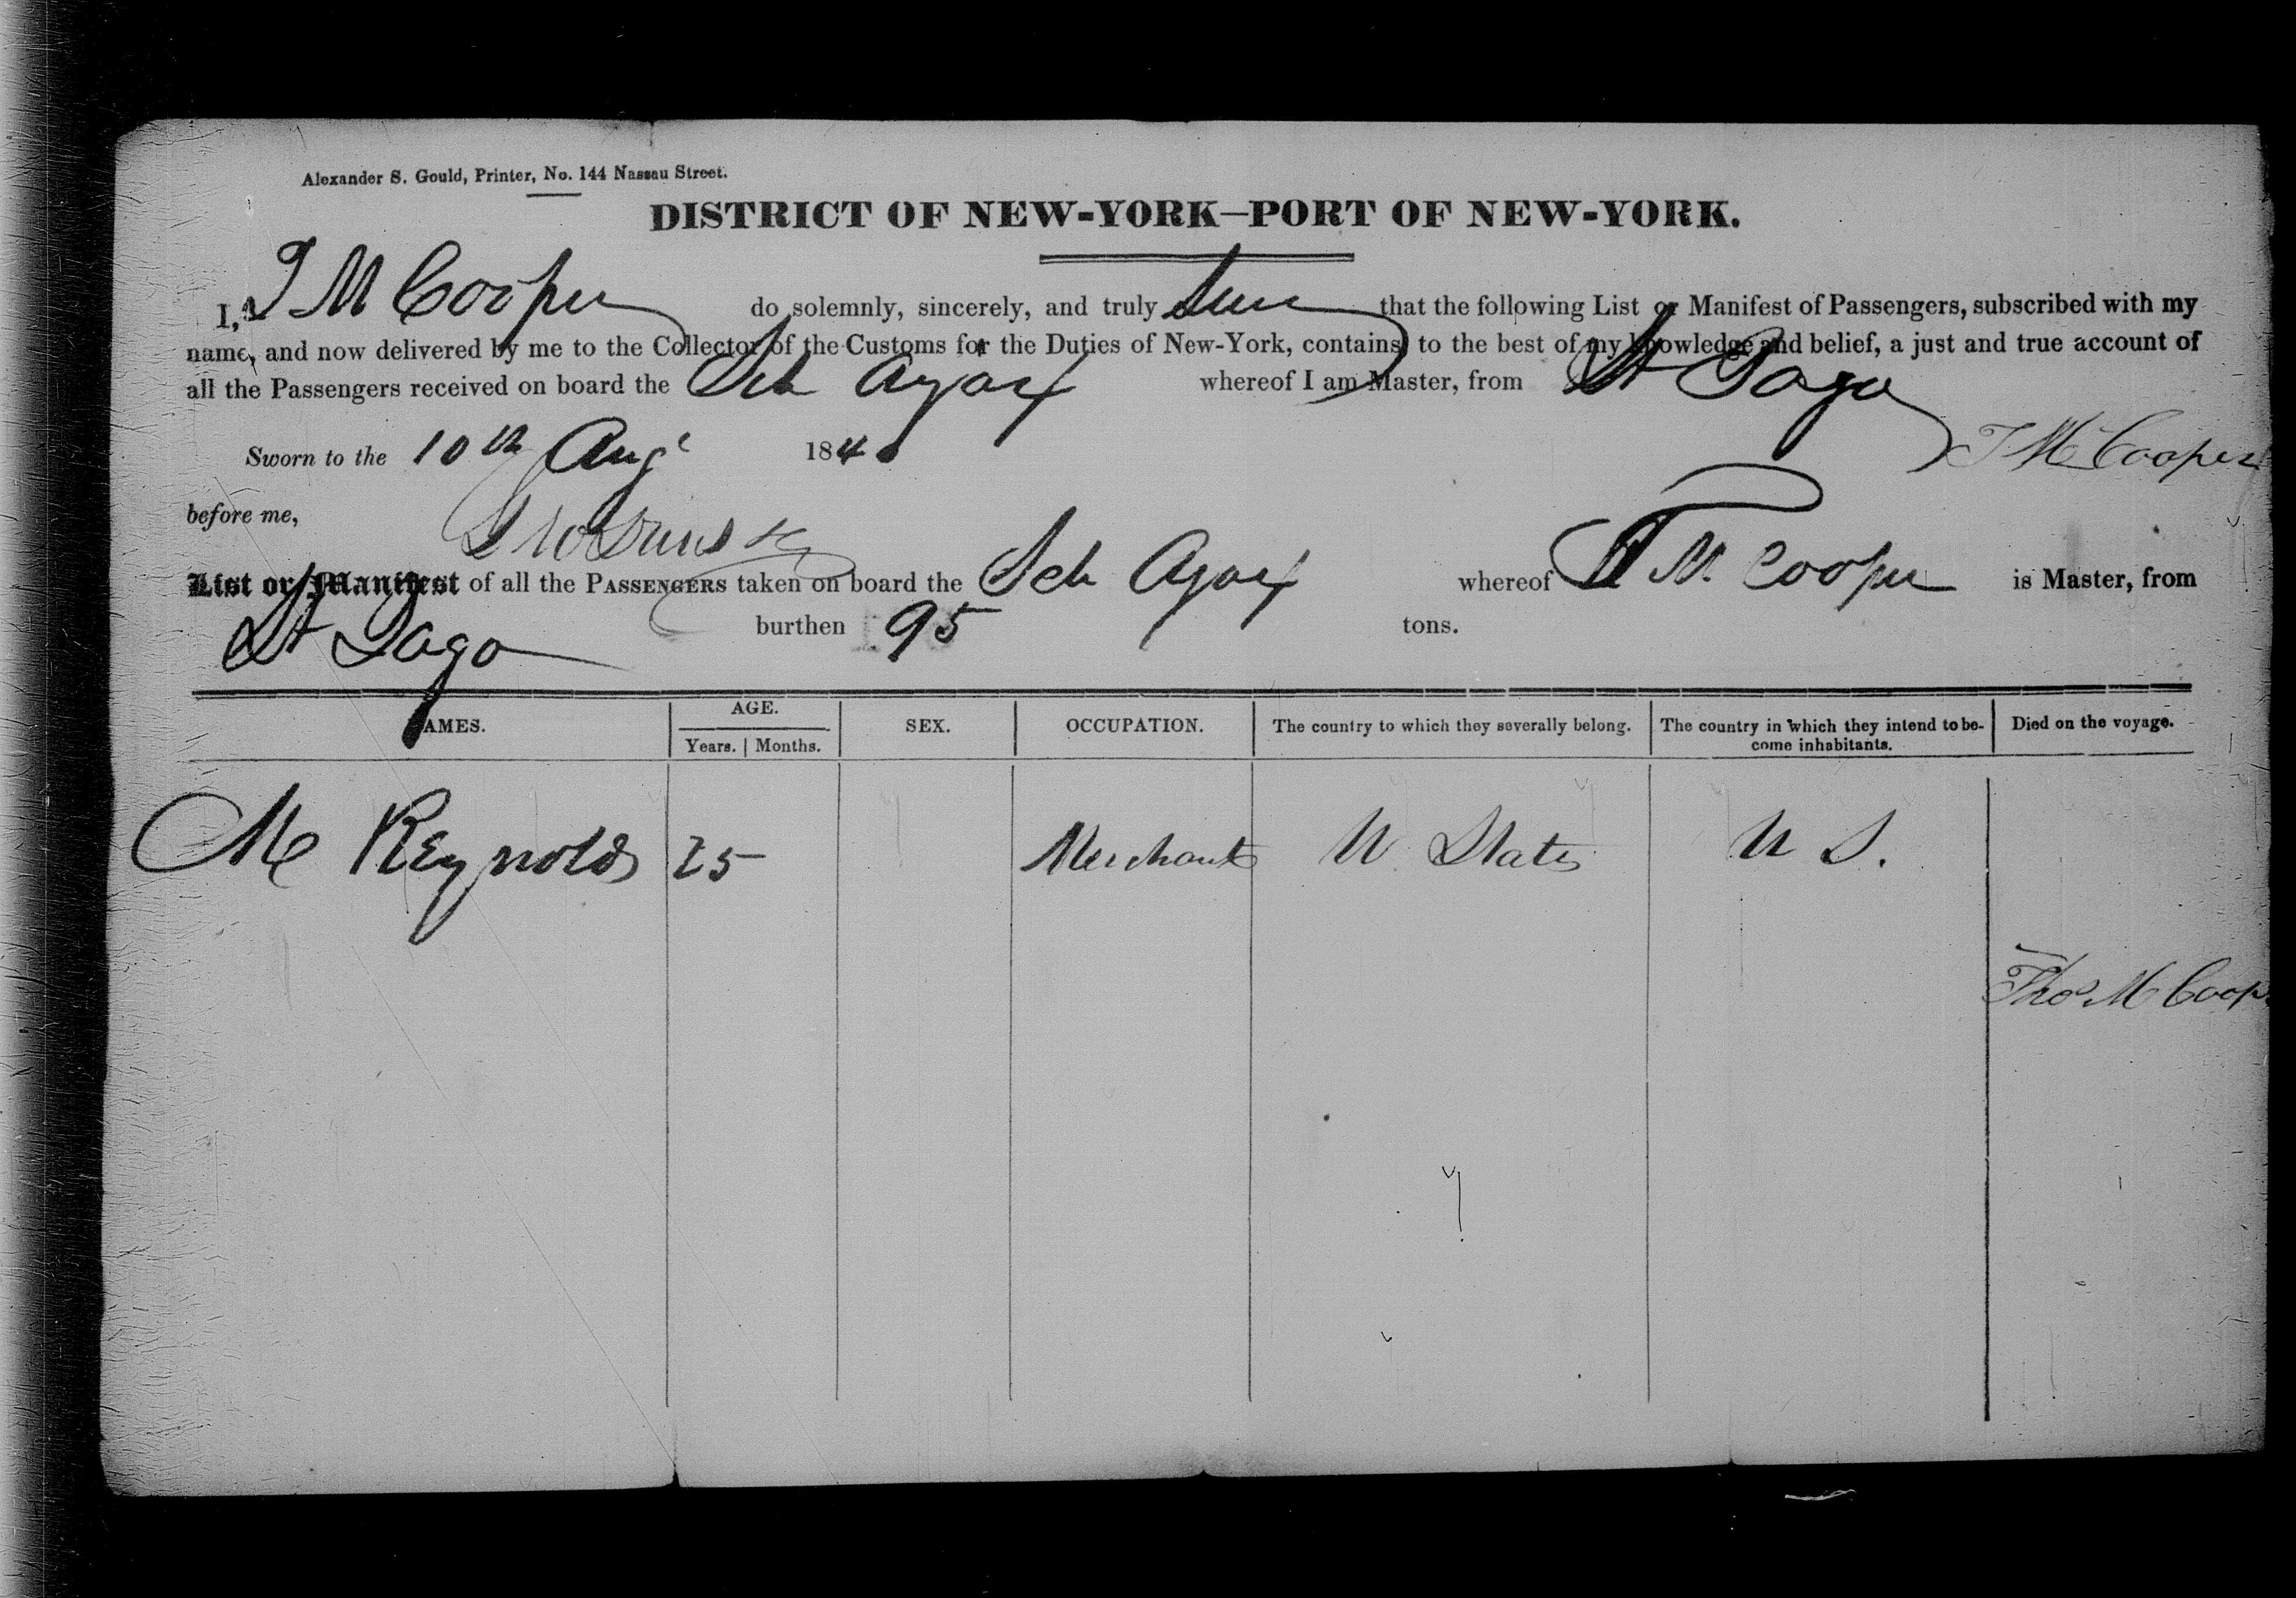 Alexander S. Gould, Printer, No. 144 Nassau Street.
DISTRICT OF NEW-YORK—PORT OF NEW-YORK.
I, T M Cooper do solemnly, sincerely, and truly that the following List or Manifest of Passengers, subscribed with my
name, and now delivered by me to the Collector of the Customs for the Duties of New-York, contains, to the best of my knowledge and belief, a just and true account of
all the Passengers received on board the Sch Ajax whereof I am Master, from St Jago
T M Cooper
Sworn to the 10th Augt 184
before me,
List or Manifest of all the PASSENGERS taken on board the Sch Ajax whereof T M. Cooper is Master, from
St Jago burthen 95 tons.
NAMES. AGE. Years. Months. SEX. OCCUPATION. The country to which they severally belong. The country in which they intend to become inhabitants. Died on the voyage.
M Reynolds 25 Merchant U States U S.
Thos M Coop